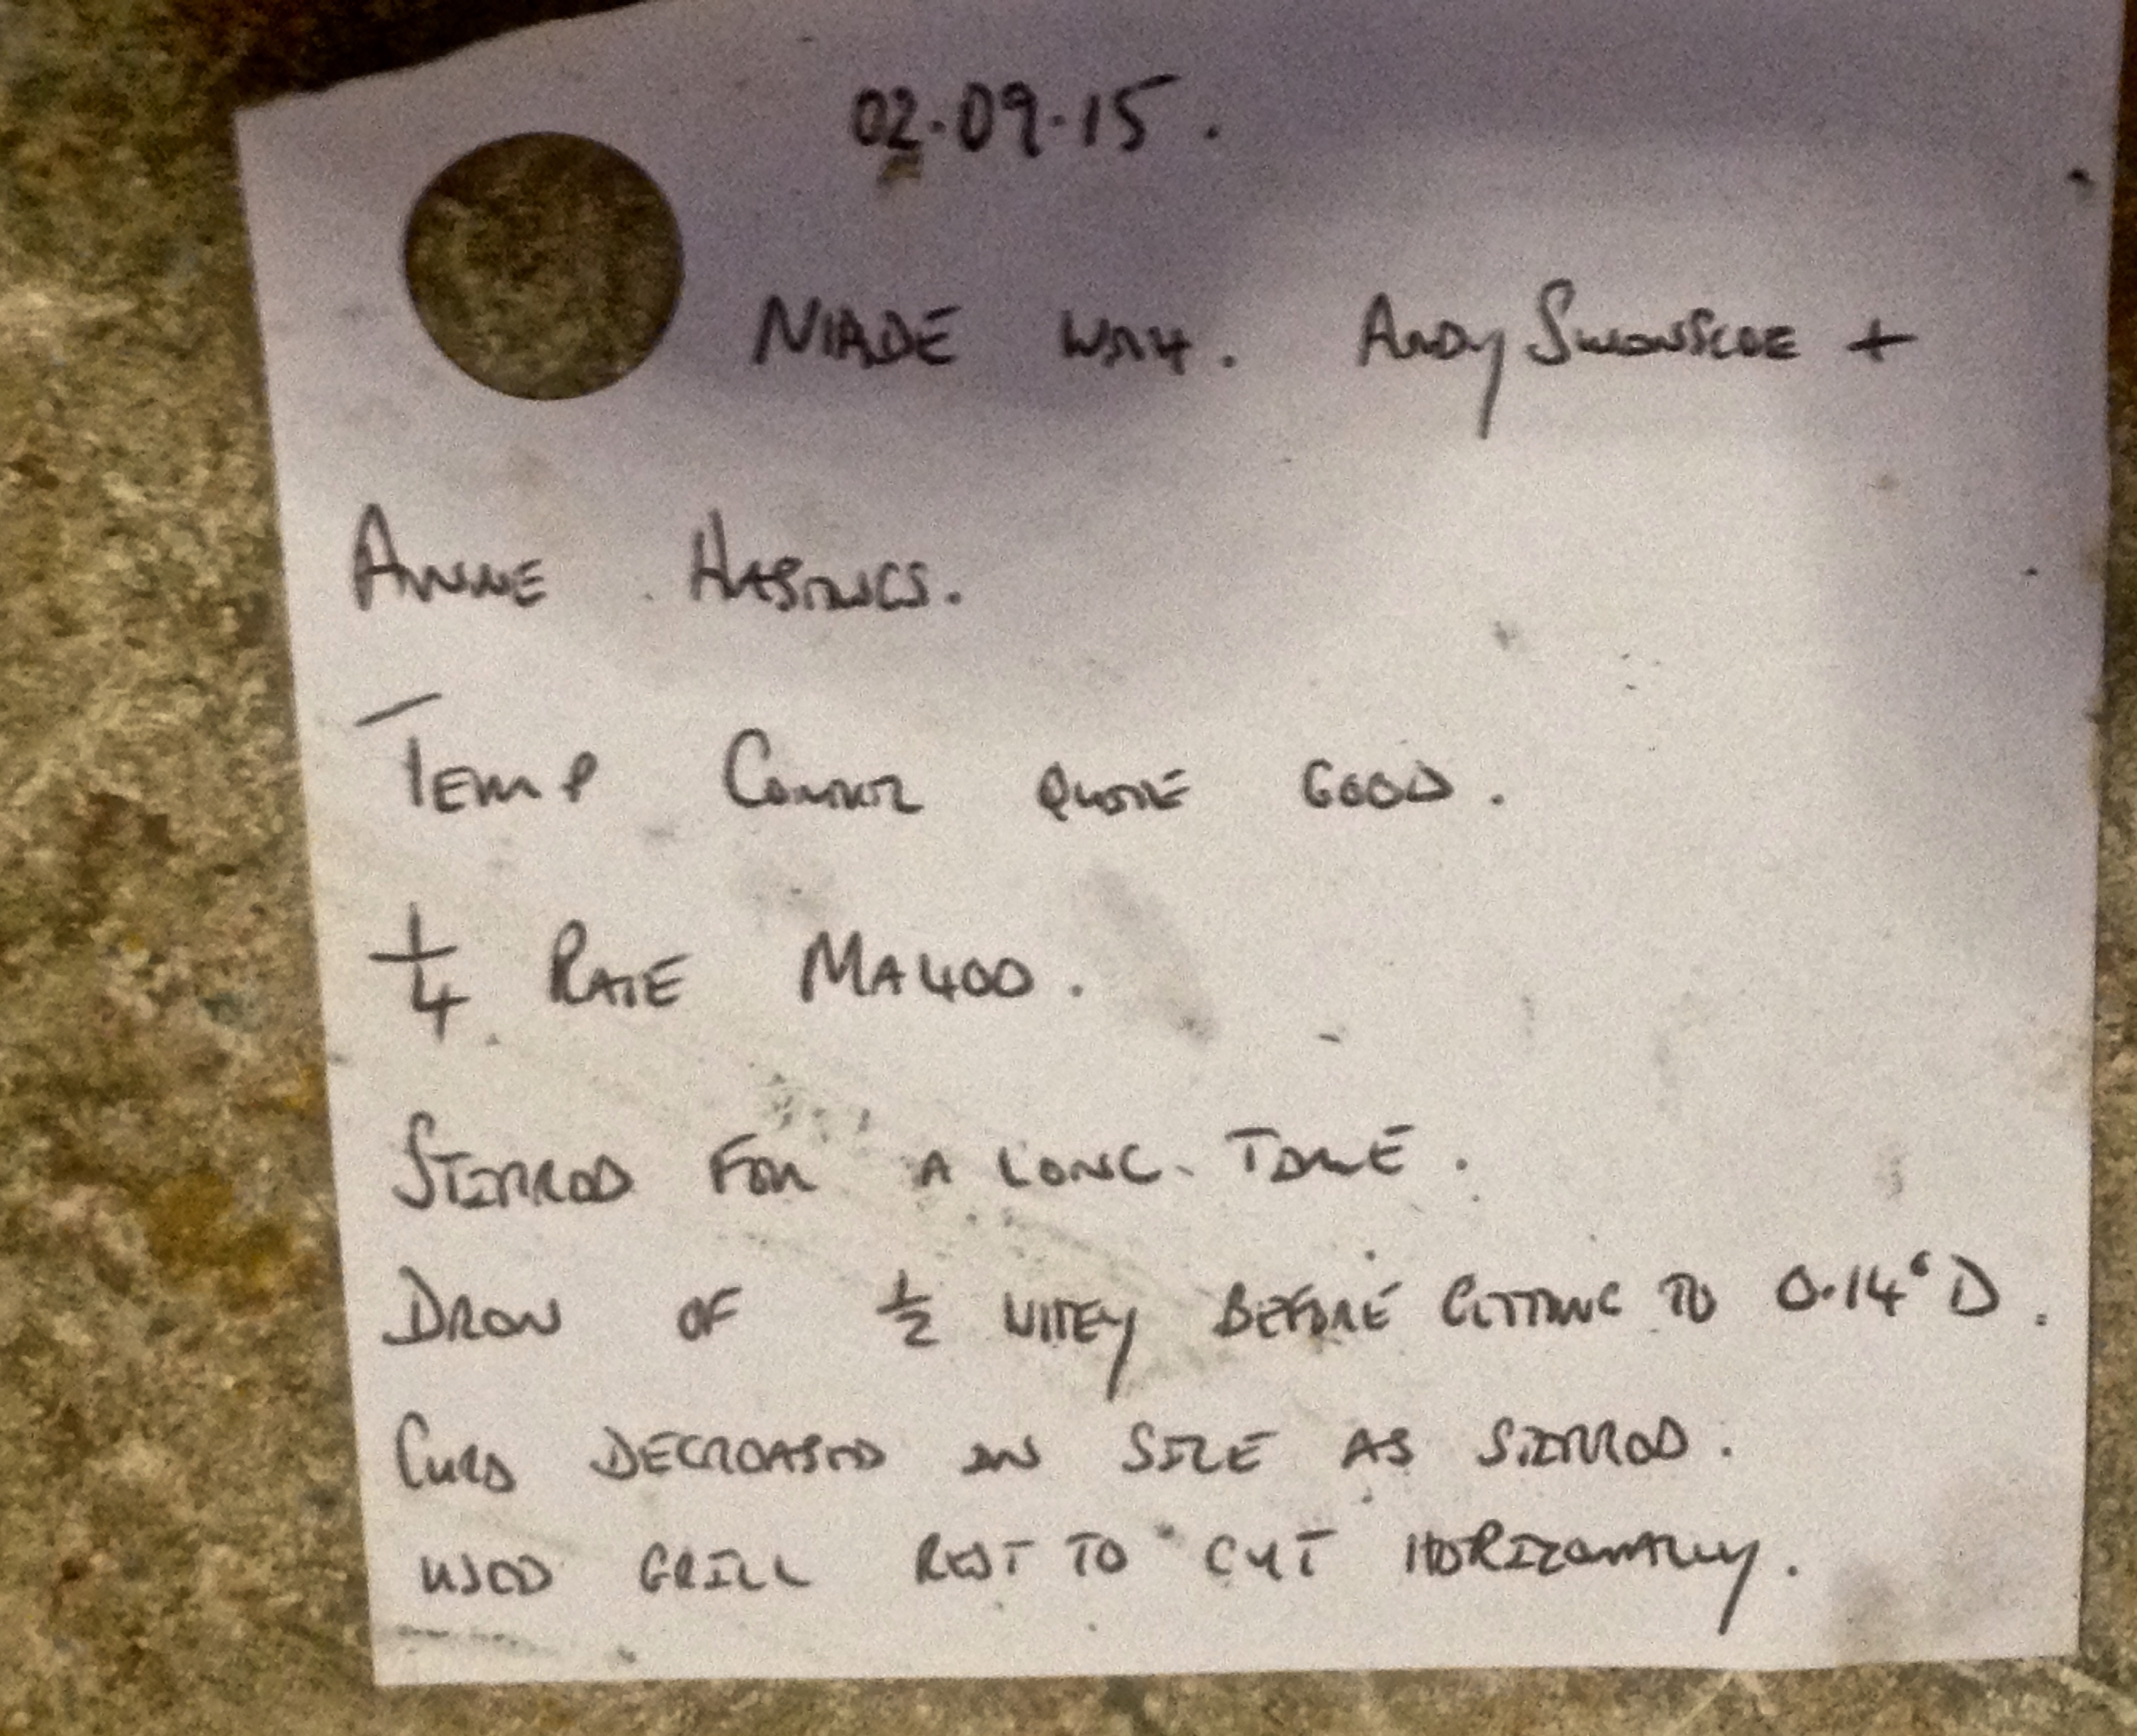 02.09.15.
MADE WITH. ANDY SWINSCOE +
ANNE HASTINGS.
TEMP CONTROL QUITE GOOD.
1/4 RATE MA400.
STIRRED FOR A LONG TIME.
DRAW OF 1/2 WHEY BEFORE GETTING TO 0.14°D.
CURD DECREASED IN SIZE AS STIRRED.
USED GRILL REST TO CUT HORIZONTALLY.